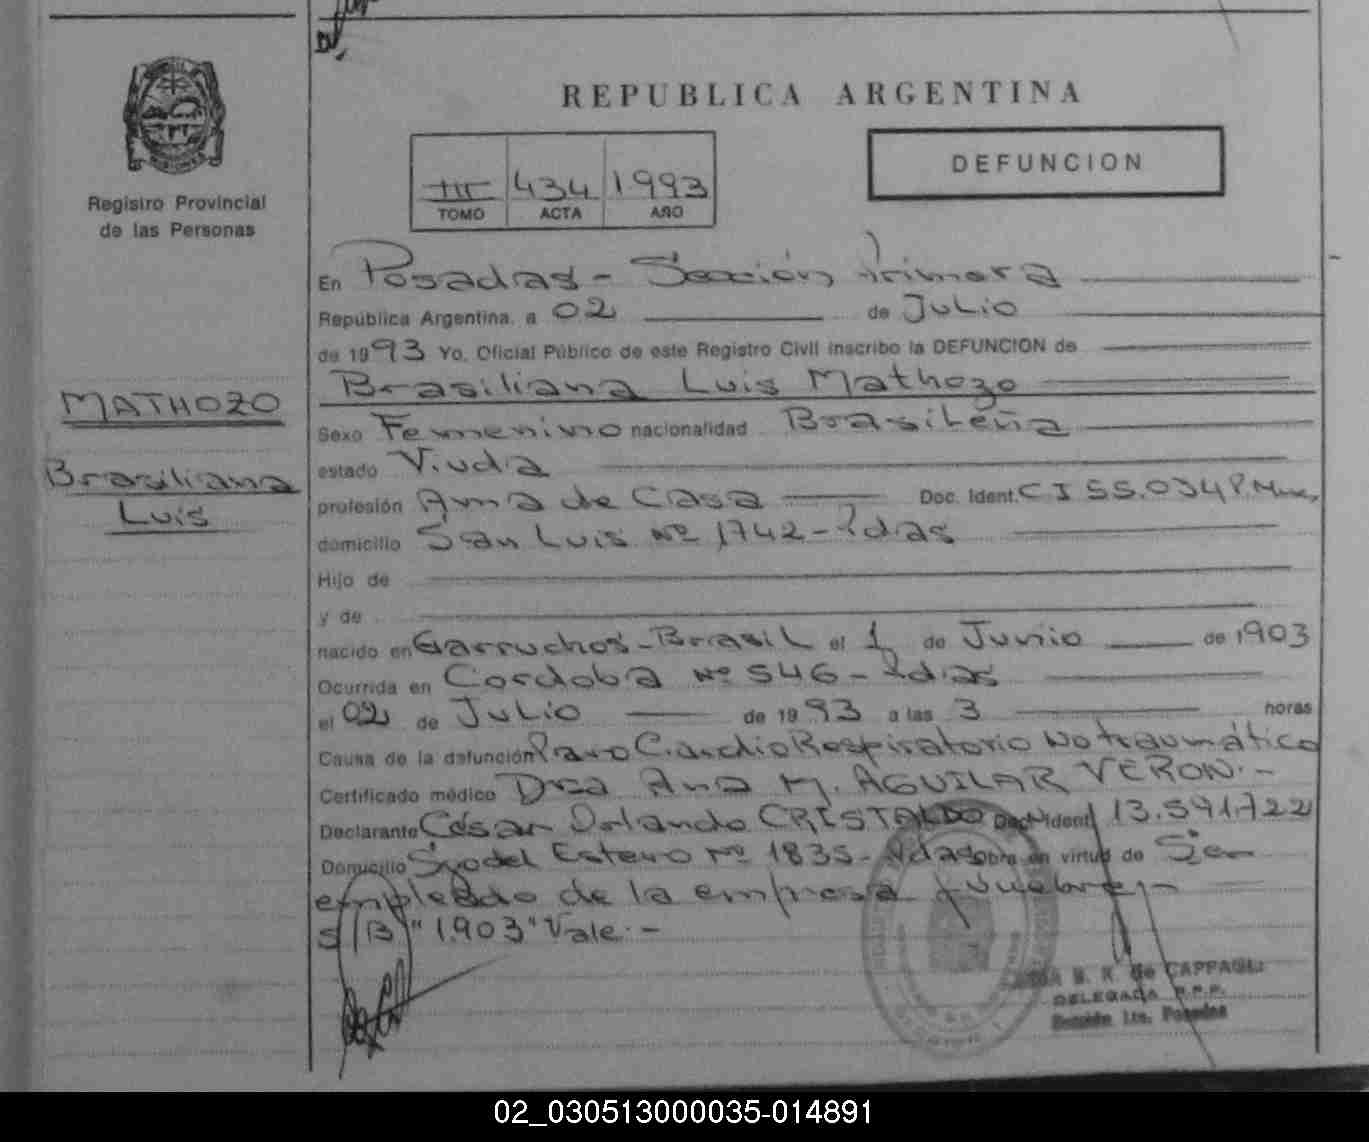 REPUBLICA ARGENTINA
DEFUNCION
III 434 1.993
TOMO ACTA AÑO
Registro Provincial
de las Personas
MATHOZO
Brasiliana
Luis
En Posadas - Sección Primera
República Argentina, a 02 de Julio
de 1993 Yo, Oficial Público de este Registro Civil inscribo la DEFUNCION de
Brasiliana Luis Mathozo
Sexo Femenino nacionalidad Brasileña
estado Viuda
profesión Ama de Casa Doc. Ident. C I 55.034 P. Mnes,
domicilio San Luis Nº 1742 - Pdas
Hijo de
y de
nacido en Garruchos - Brasil el 1 de Junio de 1903
Ocurrida en Cordoba Nº 546 - Pdas
el 02 de Julio de 1993 a las 3 horas
Causa de la defunción Paro Cardio Respiratorio No traumático
Certificado médico Dra Ana M. AGUILAR VERON.-
Declarante César Orlando CRISTALDO Doc. Ident. 13.591.722
Domicilio Sgo del Estero Nº 1835 - Pdas obra en virtud de Ser
empleado de la empresa fúnebre,-
S/B "1.903" Vale.-
B. R. de CAPPAGLI
DELEGADA R.P.P.
Sección 1ra. Posadas
02_030513000035-014891